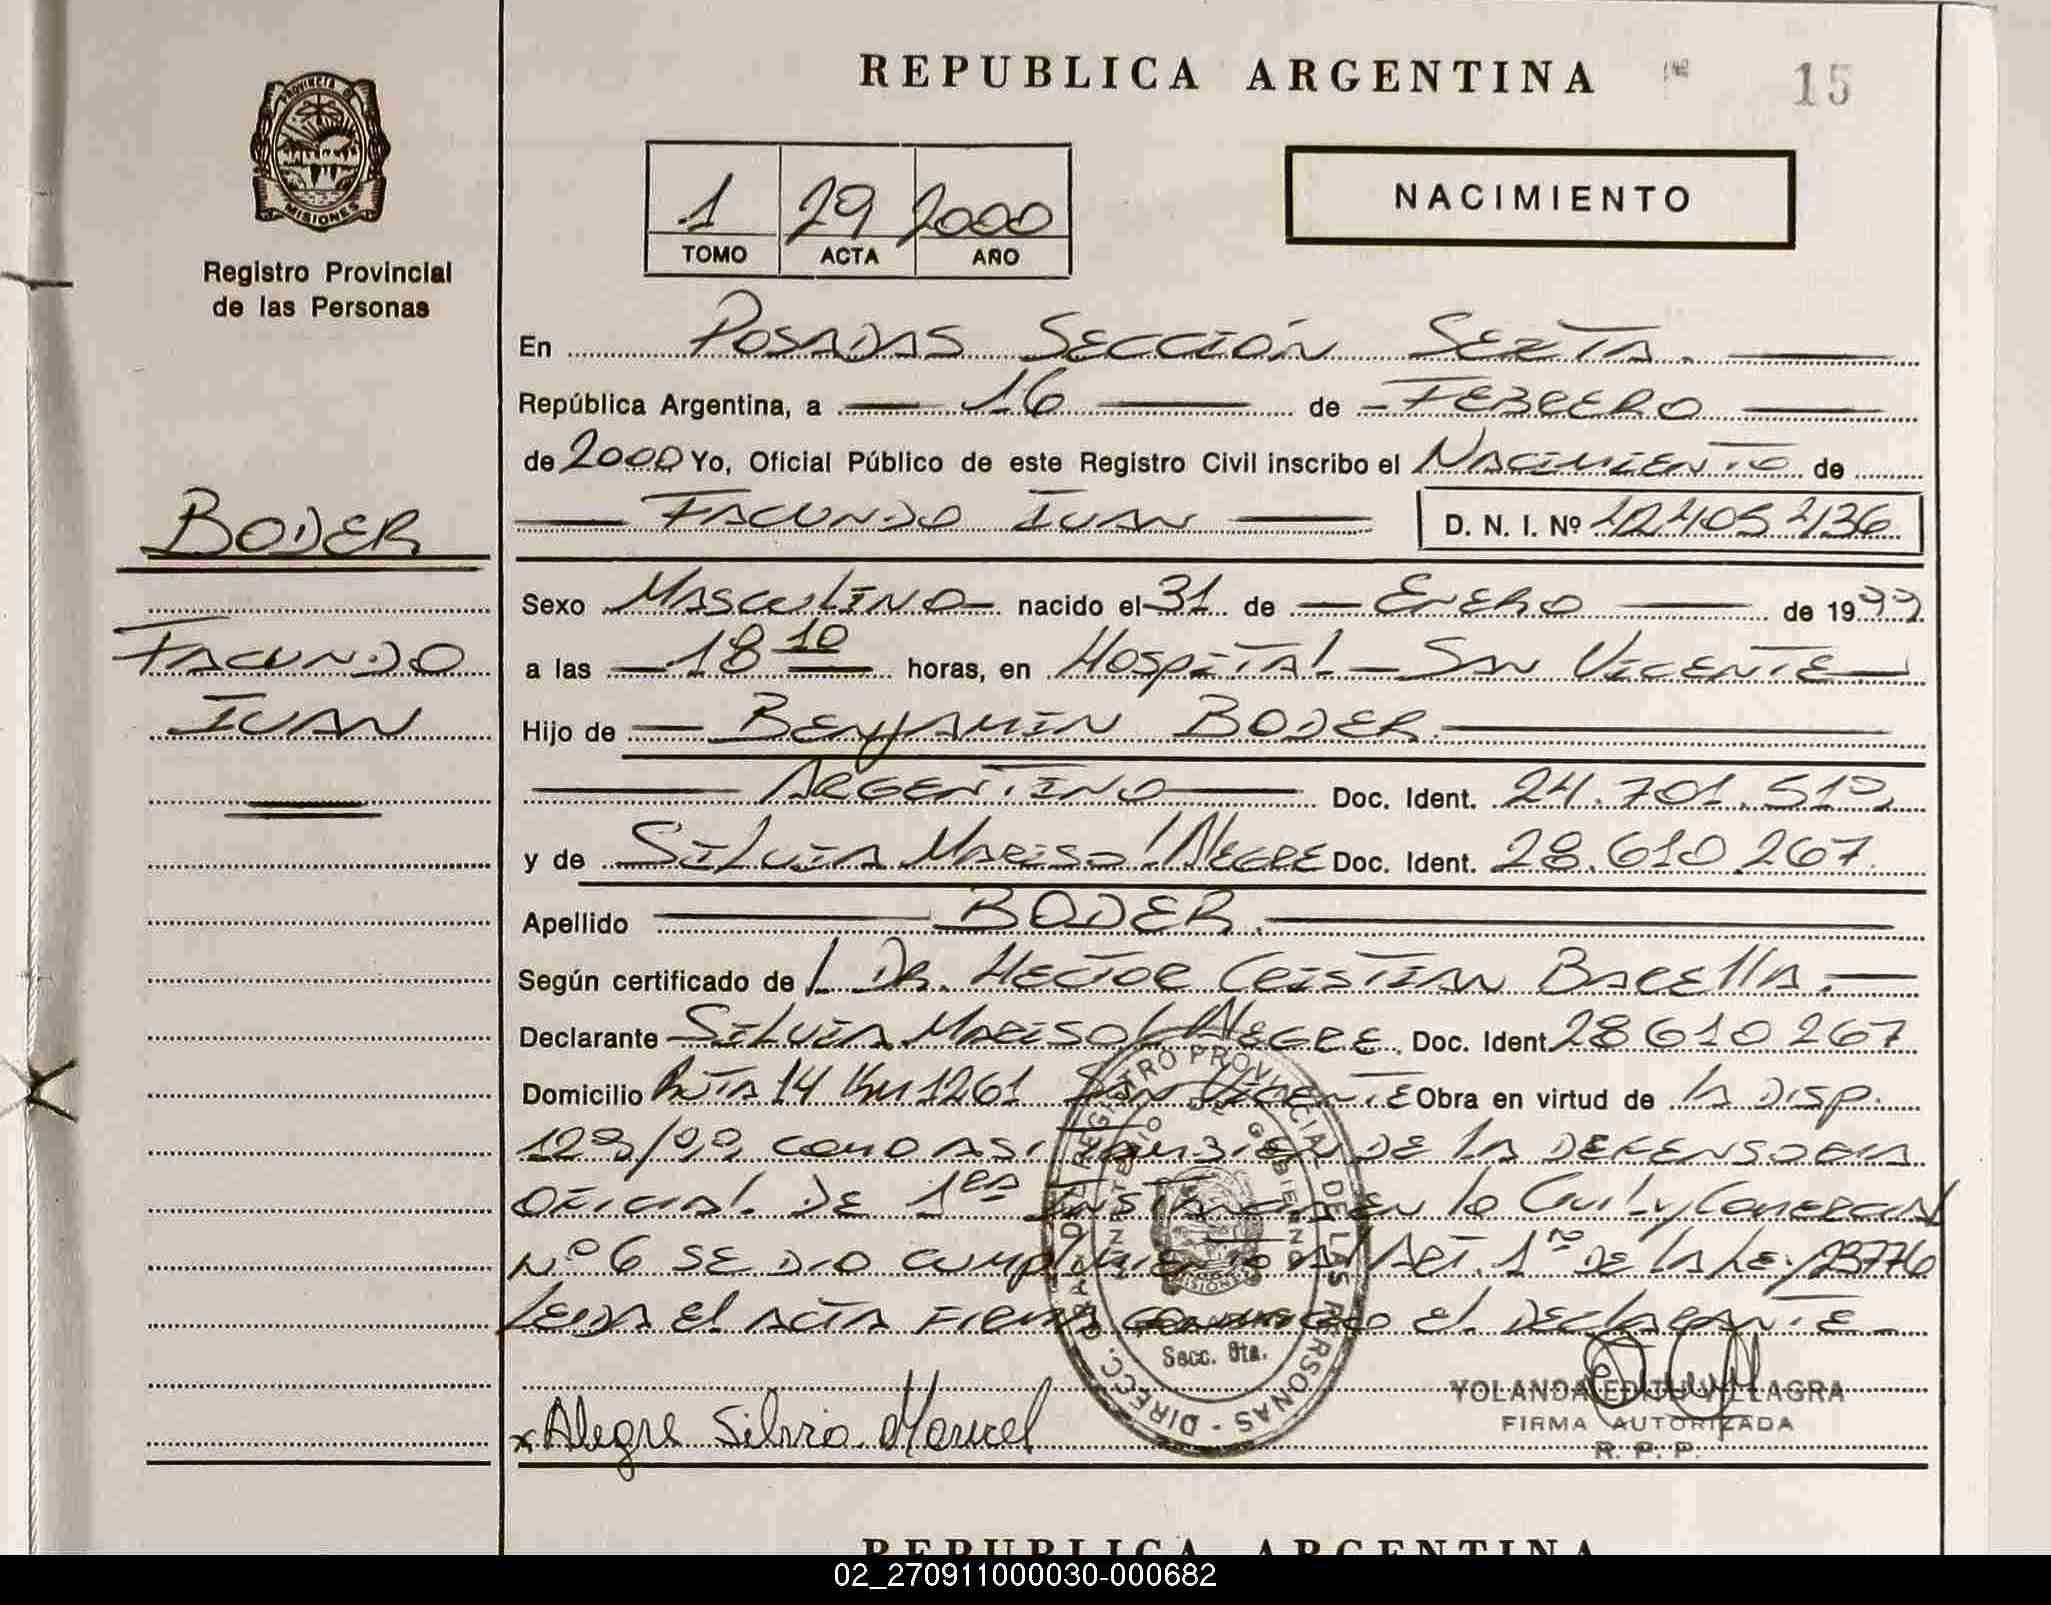 REPUBLICA ARGENTINA
15
PROVINCIA DE
MISIONES
Registro Provincial
de las Personas
1 29 2000
TOMO ACTA AÑO
NACIMIENTO
En POSADAS SECCIÓN SEXTA.
República Argentina, a 16 de FEBRERO
de 2000 Yo, Oficial Público de este Registro Civil inscribo el NACIMIENTO de
FACUNDO IVAN D. N. I. Nº
BODER
FACUNDO
IVAN
Sexo MASCULINO nacido el 31 de ENERO de 1999
a las 18 10 horas, en HOSPITAL SAN VICENTE
Hijo de BENJAMIN BODER
ARGENTINO Doc. Ident. 24.701.519
y de SILVIA MARISOL ALEGRE Doc. Ident. 28.610.267
Apellido BODER.
Según certificado de DR. HECTOR CRISTIAN BARELLA.
Declarante SILVIA MARISOL ALEGRE. Doc. Ident 28 610 267
Domicilio RUTA 14 KM 1261 SAN VICENTE Obra en virtud de LA DISP.
COMO ASI TAMBIEN DE LA DEFENSORIA
OFICIAL DE 1ra INSTANCIA EN LO CIVIL Y COMERCIAL
Nº 6 SE DIO CUMPLIMIENTO AL ART. 1º DE LA LEY 23776
LEIDA EL ACTA FIRMA CONMIGO EL DECLARANTE
REGISTRO PROVINCIAL DE LAS PERSONAS - DIRECC.
MINISTERIO DE GOBIERNO
MISIONES
Secc. 6ta.
x Alegre Silvia Marisol
YOLANDA EDITH VILLAGRA
FIRMA AUTORIZADA
R. P. P.
REPUBLICA ARGENTINA
02_270911000030-000682